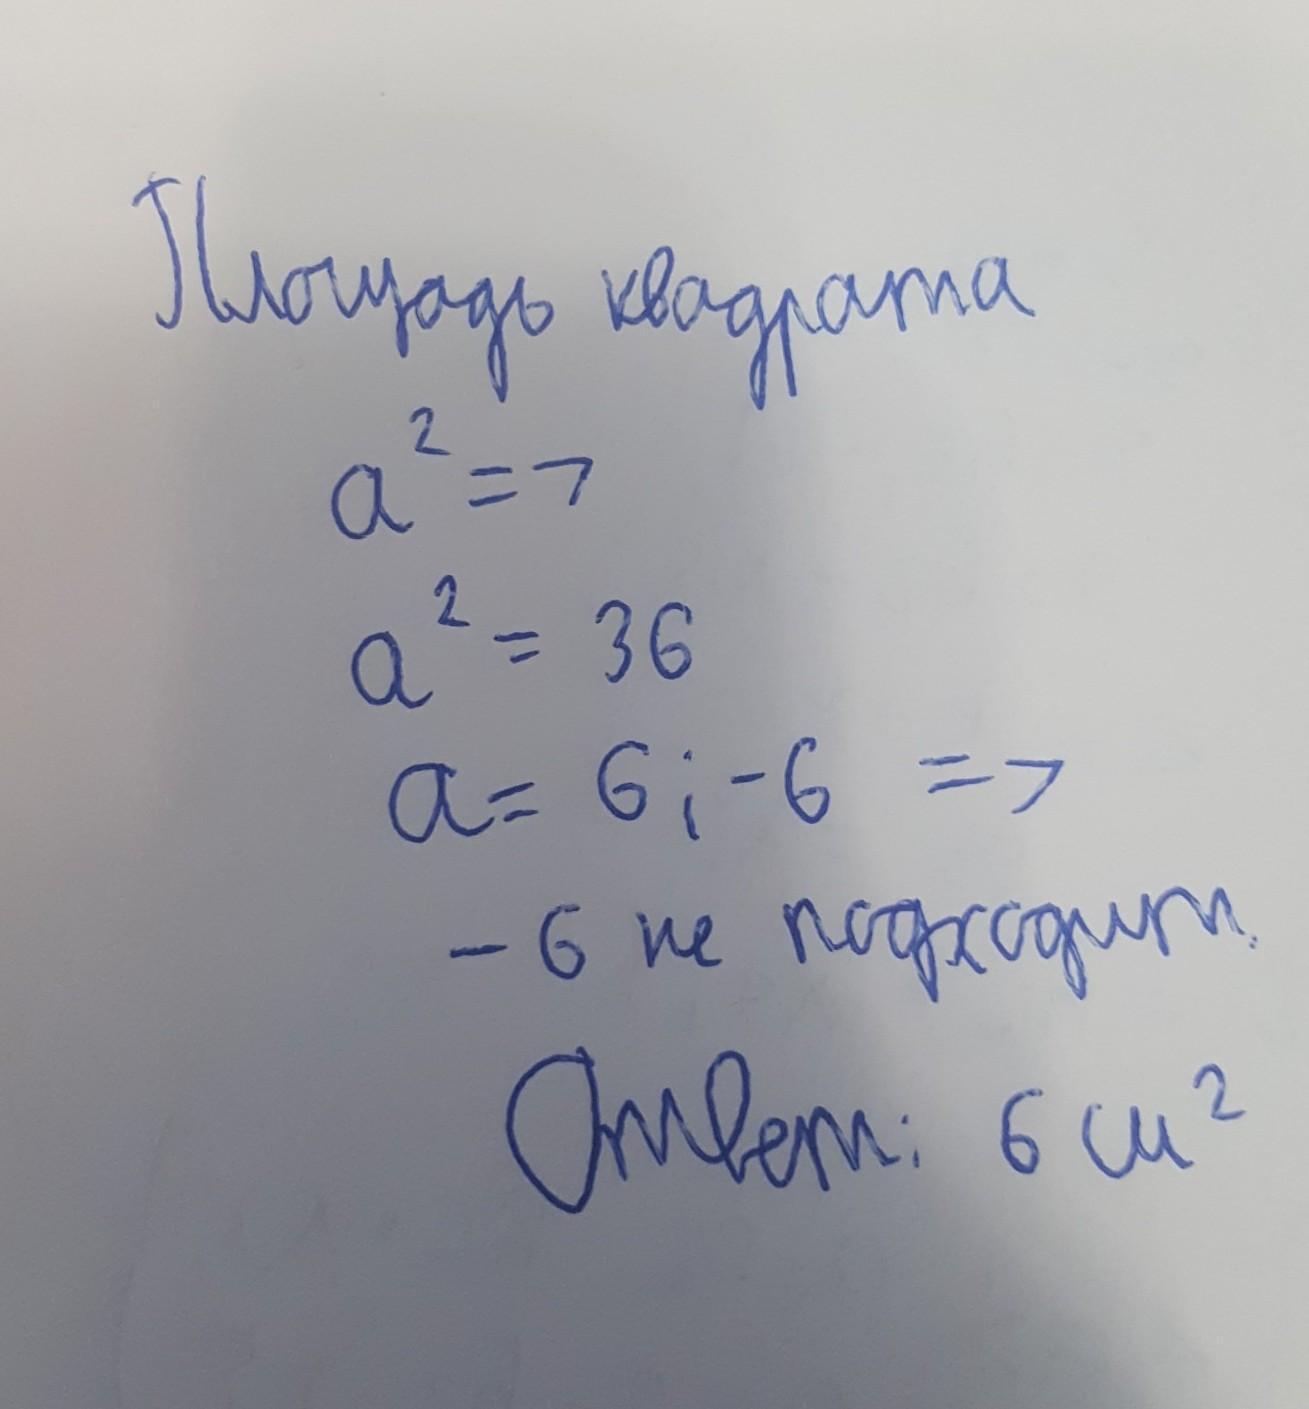 Площадь квадрата
a² =>
a² = 36
a = 6; -6 =>
- 6 не подходит.
Ответ: 6 см²